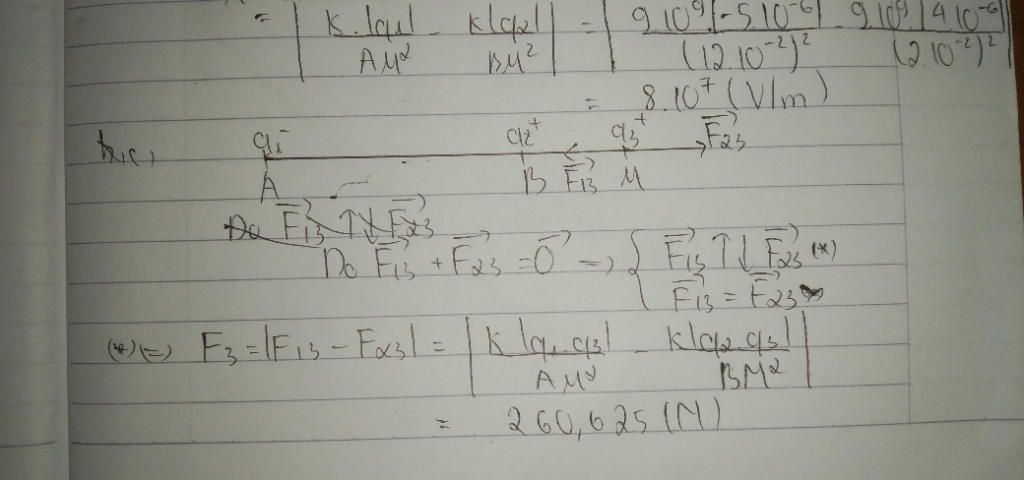 = | K.|q₁| / AM² - K|q₂| / BM² | = | 9.10⁹|-5.10⁻⁶| / (12.10⁻²)² - 9.10⁹|4.10⁻⁶| / (2.10⁻²)² |
= 8.10⁷ (V/m)
q₁⁻ q₂⁺ q₃⁺ F₂₃→
A B F₁₃→ M
Do F₁₃→ ↑↓ F₂₃→
Do F₁₃→ + F₂₃→ = 0→ => { F₁₃→ ↑↓ F₂₃→ (*)
F₁₃→ = F₂₃→
(*) (=) F₃ = |F₁₃ - F₂₃| = | K|q₁.q₃| / AM² - K|q₂.q₃| / BM² |
= 260,625 (N)